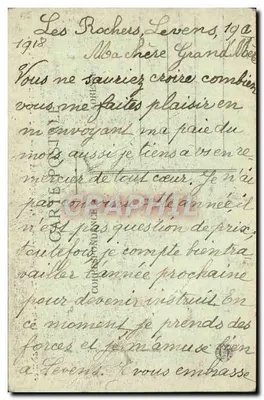 Les Rochers, Levens, 19 a
1918
Ma chère Grand Mère
Vous ne sauriez croire combien
vous me faites plaisir en
m'envoyant ma paie du
mois, aussi je tiens a vs en re
mercier de tout cœur. Je n'ai
pas année il
n'est pas question de prix
toutefois je compte bien tra
vailler l'année prochaine
pour devenir instruit En
ce moment je prends des
forces et je m'amuse bien
a Levens. Je vous embrasse
CARTE POSTALE
CORRESPONDANCE